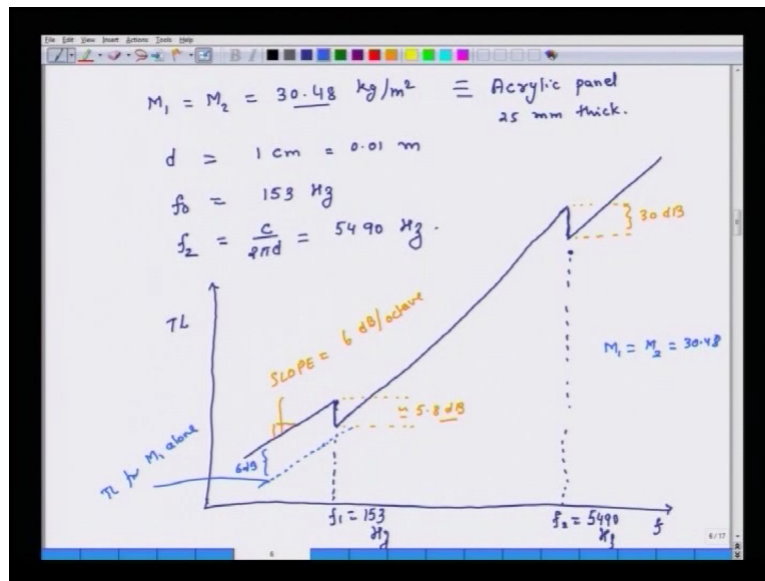 File Edit View Insert Actions Tools Help
M₁ = M₂ = 30.48 kg/m² ≡ Acrylic panel
25 mm thick.
d = 1 cm = 0.01 m
f₀ = 153 Hz
f₂ = c/2πd = 5490 Hz.
30 dB
TL
SLOPE = 6 dB/octave
M₁ = M₂ = 30.48
= 5.8 dB
TL for M₁ alone
6dB
f₁ = 153 Hz
f₂ = 5490 Hz
f
6/17
6